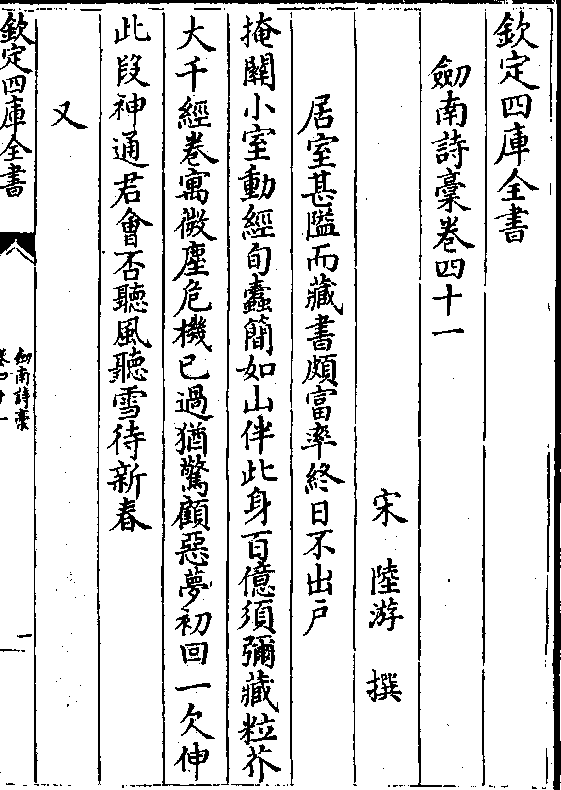 欽定四庫全書
劒南詩稾卷四十一
宋 陸游 撰
居室甚隘而藏書頗富率終日不出户
掩關小室動經旬蠹簡如山伴此身百億須彌藏粒芥
大千經卷寓微塵危機已過猶驚顧惡夢初回一欠伸
此段神通君會否聽風聽雪待新春
又
欽定四庫全書
劒南詩稾
卷四十一
一